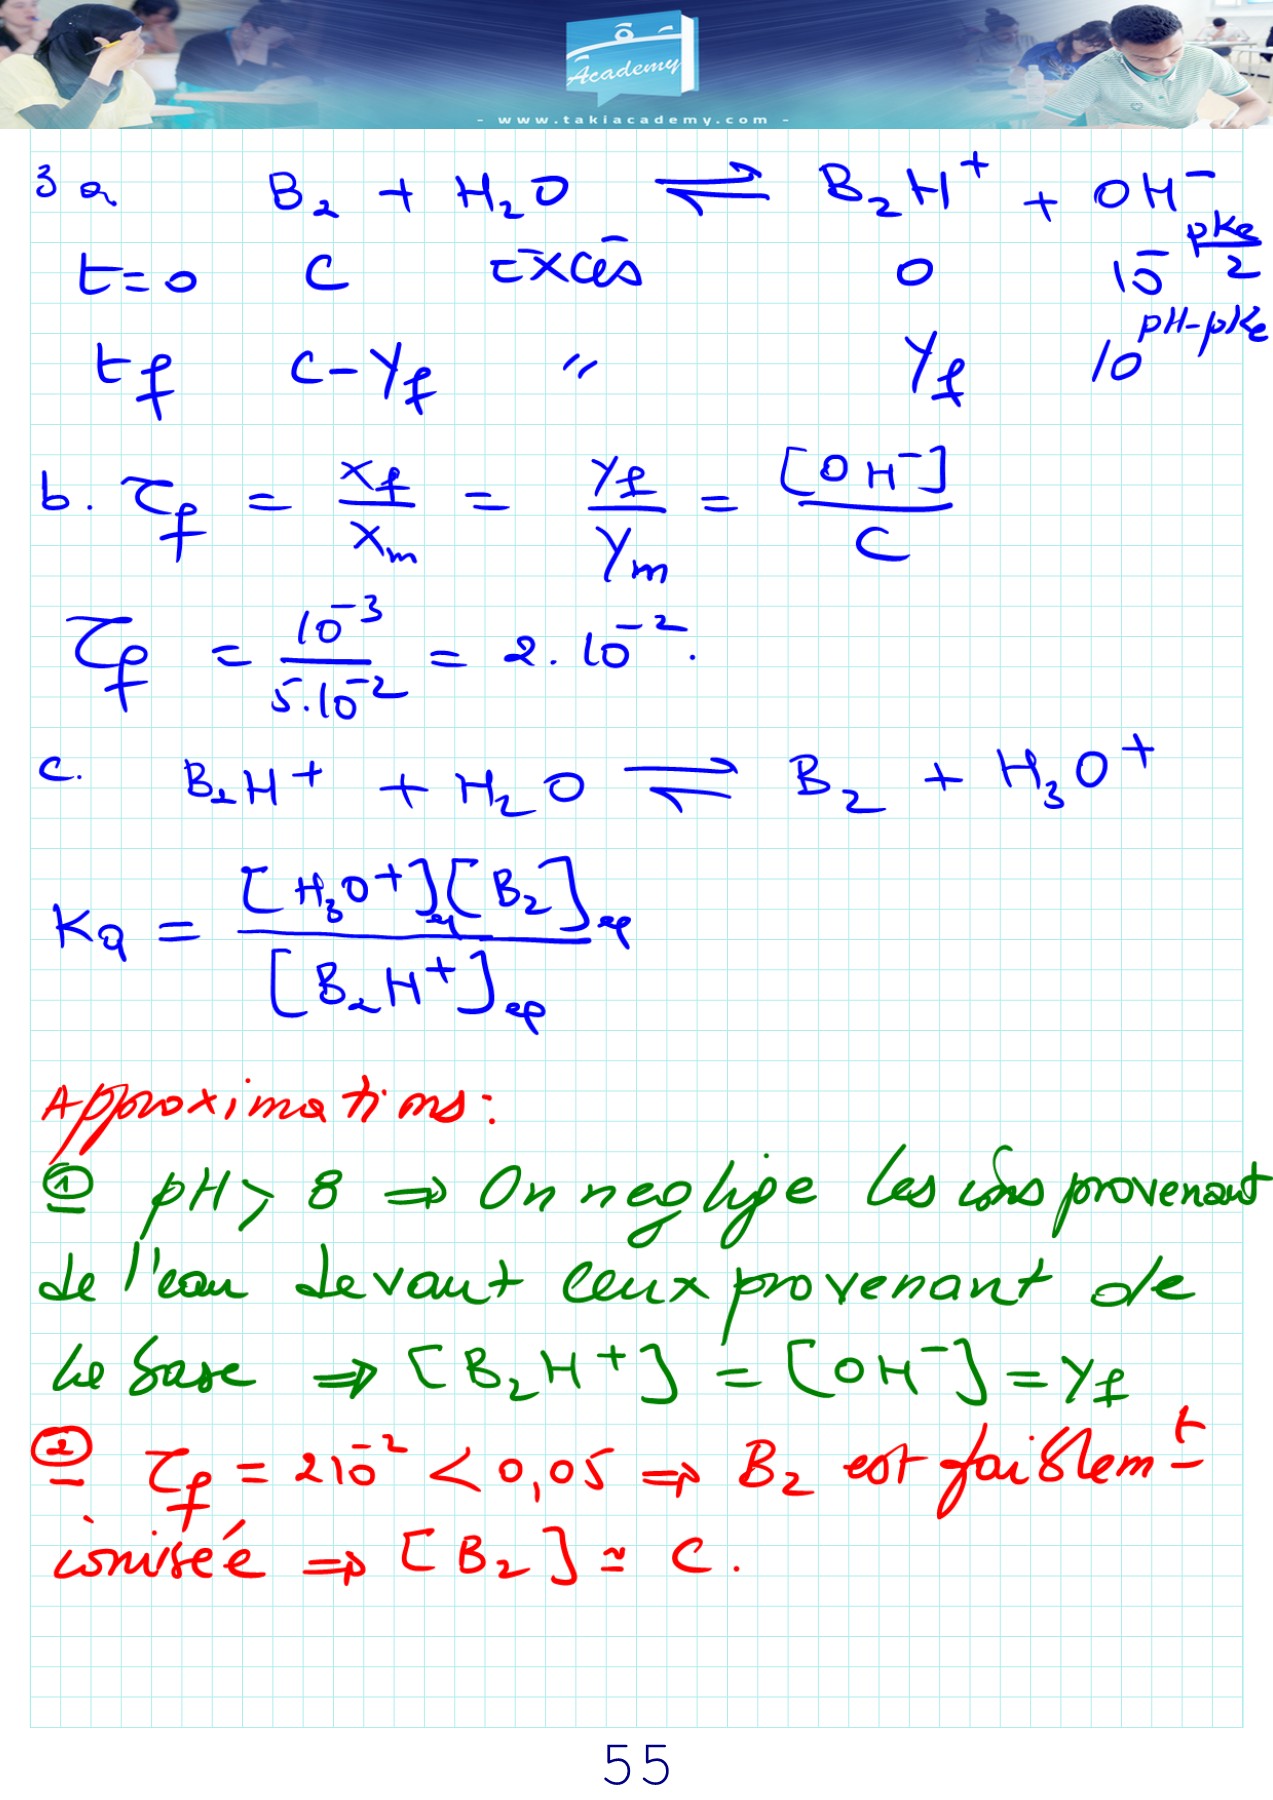 Academy
- www.takiacademy.com -
3 a B₂ + H₂O ⇌ B₂H⁺ + OH⁻
t=0 C Excès 0 10^(-pKe/2)
tf C-yf " yf 10^(pH-pKe)
b. τf = xf/xm = yf/ym = [OH⁻]/C
τf = 10⁻³/5.10⁻² = 2.10⁻².
c. B₂H⁺ + H₂O ⇌ B₂ + H₃O⁺
Ka = [H₃O⁺]éq[B₂]éq/[B₂H⁺]éq
Approximations:
① pH > 8 ⇒ On neglige les ions provenant
de l'eau devant ceux provenant de
la base ⇒ [B₂H⁺] = [OH⁻] = yf
② τf = 2 10⁻² < 0,05 ⇒ B₂ est faiblemᵗ
ionisée ⇒ [B₂] ≃ C.
55